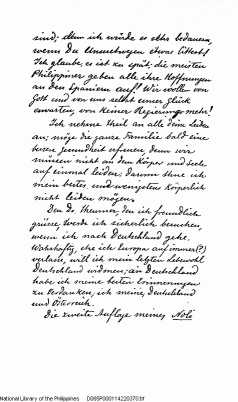 sind; denn ich würde es sehr bedauern,
wenn du Unannehmes etwas littest!
Ich glaube, es ist zu spät; die meisten
Philippiner geben alle ihre Hoffnungen
an den Spaniern auf! Wir wollen von
Gott und von uns selbst unser Glück
erwarten, von keiner Regierung mehr!
Ich nehme theil an alle deine Leiden
an; möge die ganze Familie bald eine
bessere Gesundheit erfreuen, denn wir
müssen nicht an dem Körper und Seele
auf einmal leiden; darum thue ich
mein bestes und wenigstens körperlich
nicht leiden mögen.
Den Dr. den ich freundlich
grüsse, werde ich sicherlich besuchen,
wenn ich nach Deutschland gehe.
Wahrhaftig, ehe ich Europa auf immer(?)
verlasse, will ich mein letztes Lebewohl
Deutschland widmen; an Deutschland
habe ich meine besten Erinnerungen
zu verdanken; ich meine, Deutschland
und Österreich.
Die zweite Auflage meines Noli
National Library of the Philippines